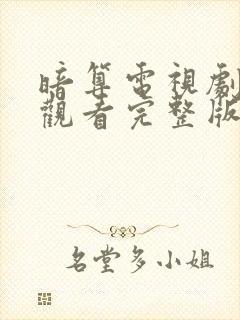 暗算電視劇
觀看完整版
名堂多小姐